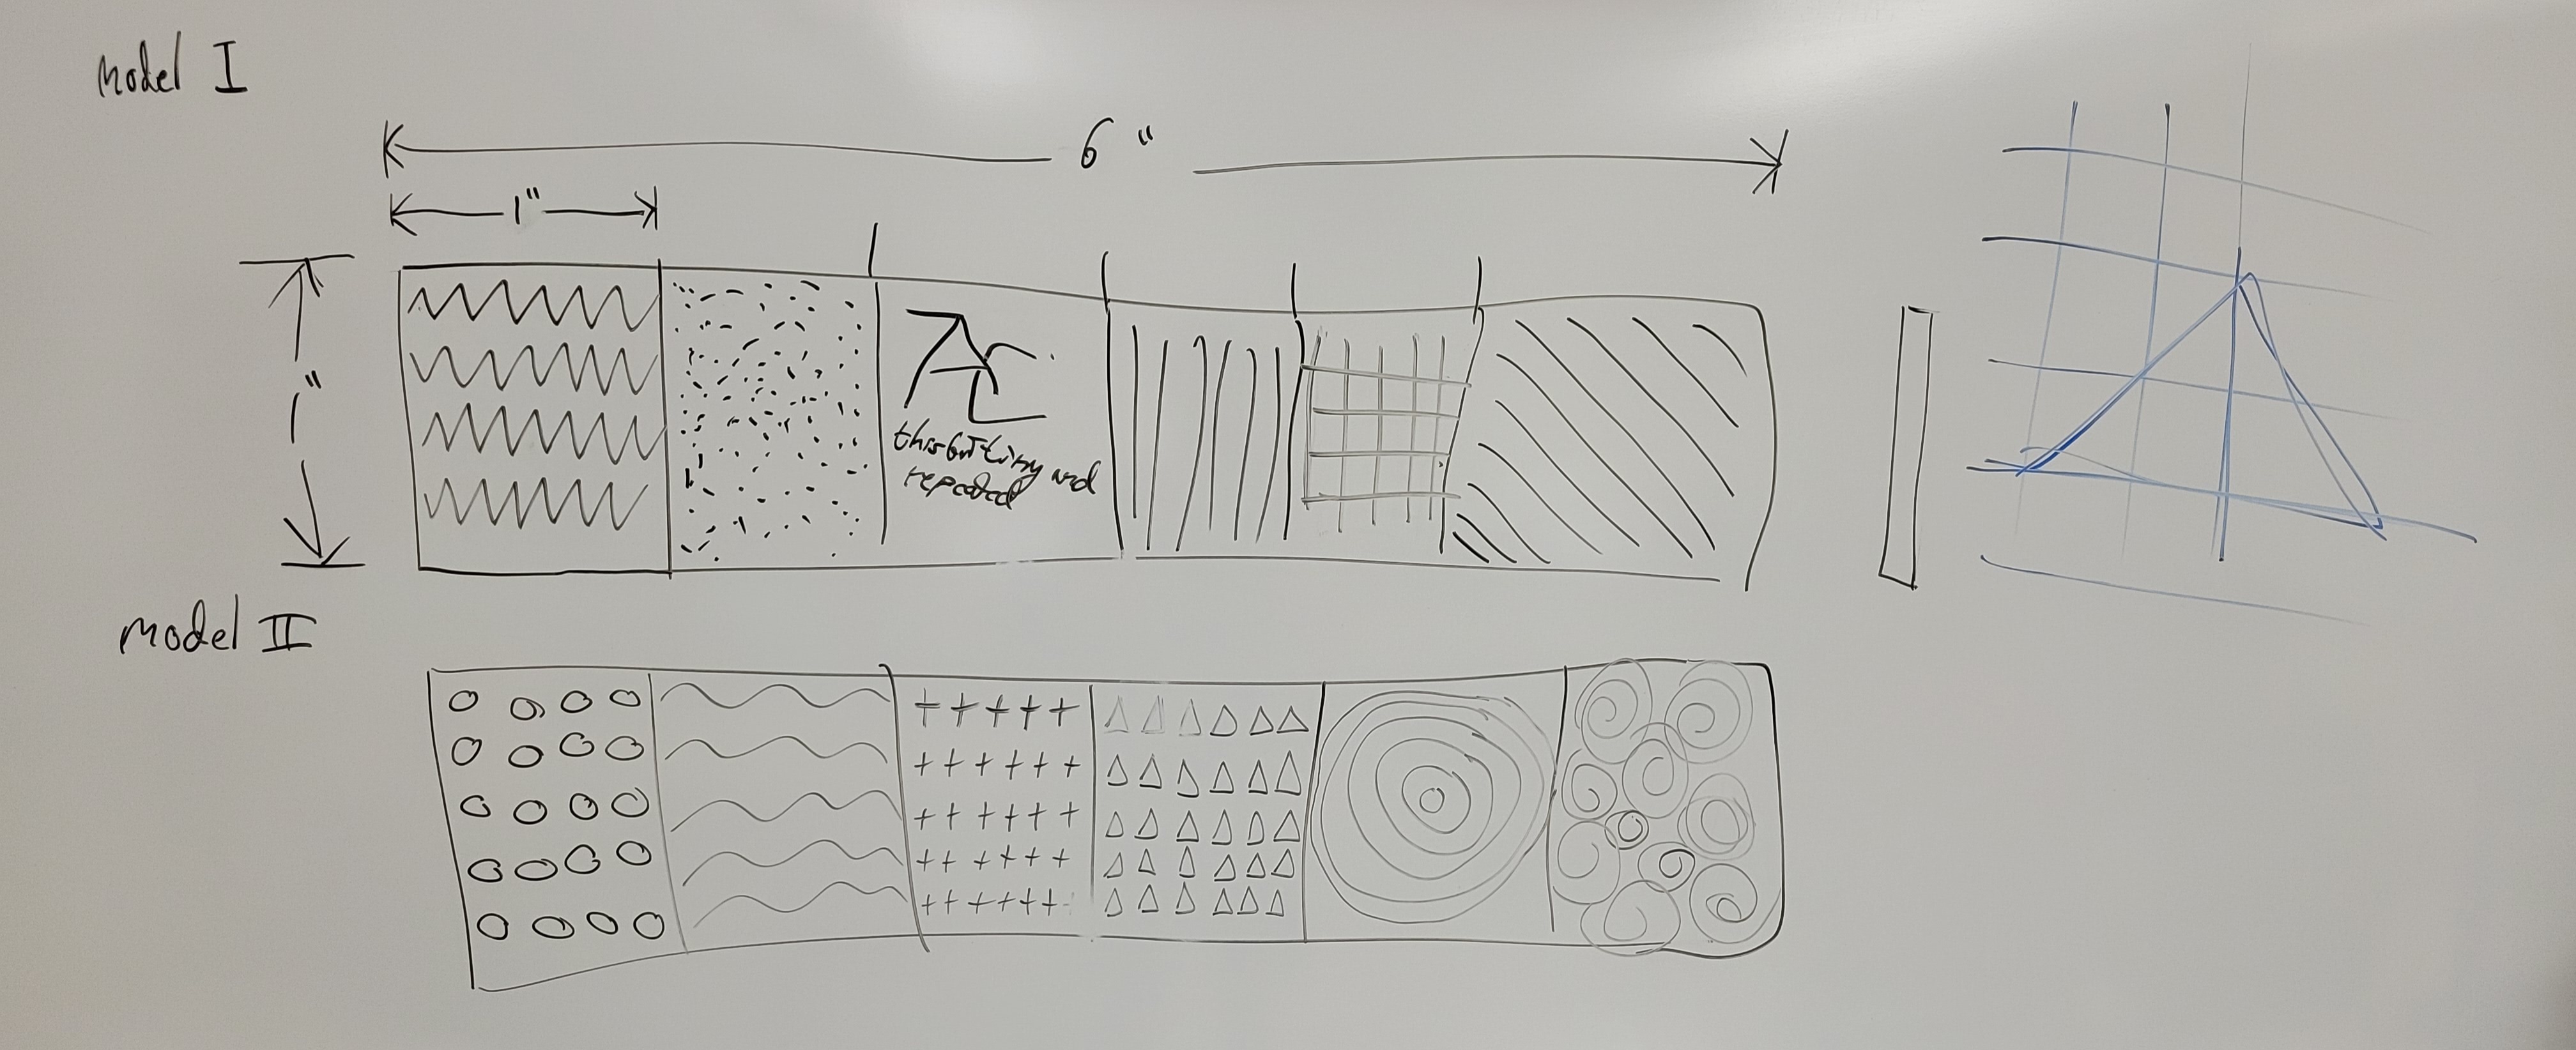 Model I
6"
1"
1"
this but tiny and
repeated
Model II